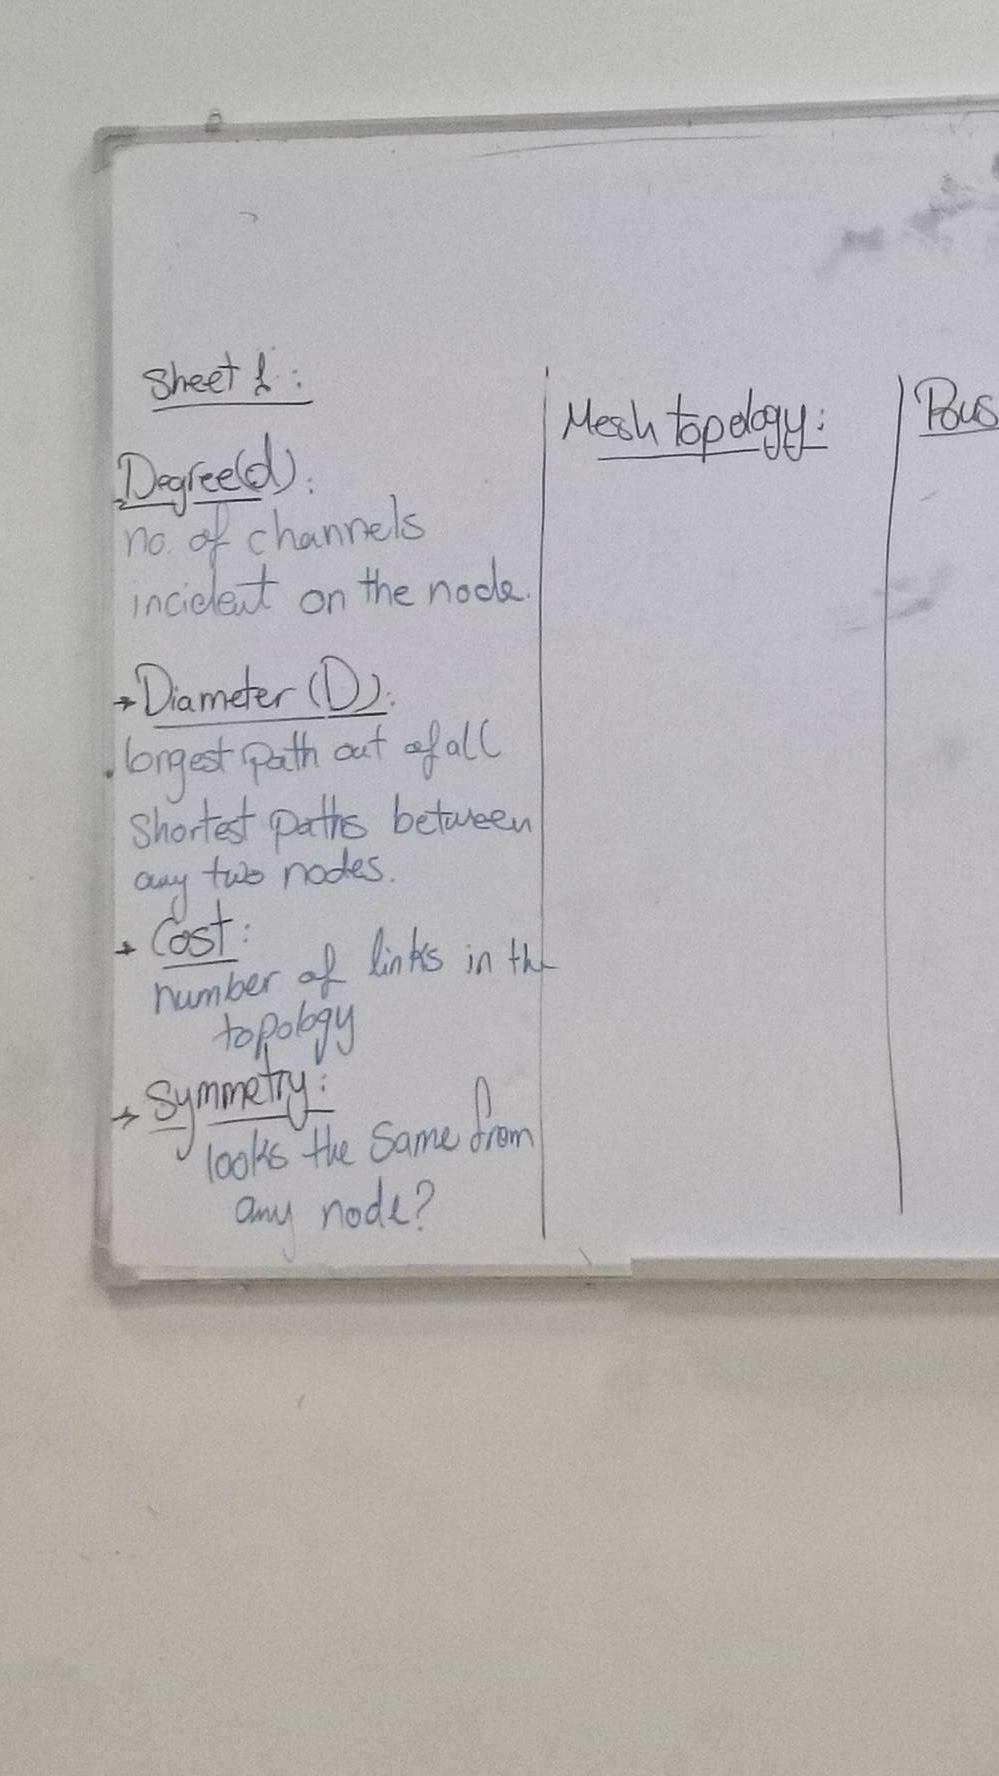 Sheet 1:
Degree(d):
no. of channels
incident on the node.
→ Diameter (D):
longest path out of all
shortest paths between
any two nodes.
→ Cost:
number of links in the
topology
→ Symmetry:
looks the same from
any node?
Mesh topology:
Bus